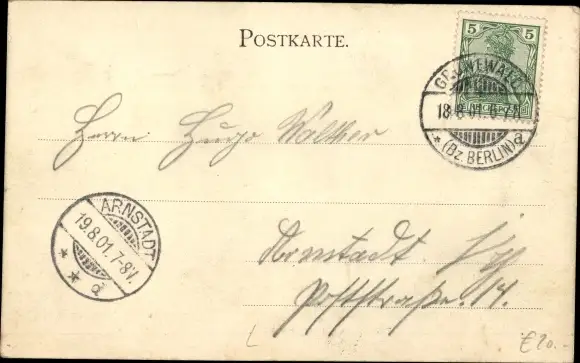 POSTKARTE.
5 5
GRUNEWALD
18.8.01.6-7N.
* (Bz. BERLIN) a
Herrn Hugo Walther
ARNSTADT
19.8.01.7-8V.
* * d
Arnstadt. i/Th
Poststraße. 14.
L
€20.-